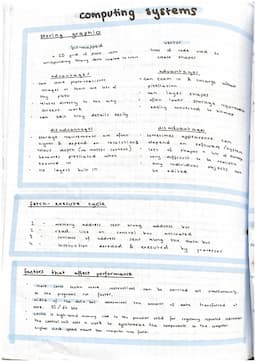 computing systems
storing graphics
bit-mapped
vector
- 2D grid of pixels with
corresponding binary data
- lines of code used to
create shapes
advantages
- can store photo-realistic
images as there are lots of
tiny pixels
- relates directly to the way
screens work
- can show tiny details easily
advantages
- can zoom in & enlarge without
pixellation
- can layer shapes
- often lower storage requirements
- easily converted to bitmap
disadvantages
- storage requirements are often
higher & depend on resolution &
colour depth
- becomes pixellated when
zoomed in
- no layers built in
disadvantages
- sometimes appearance can
depend on software
- lots of shapes = lots of storage
- very difficult to be realistic
- only individual objects can
be edited
fetch-execute cycle
1 - memory address sent along address bus
2 - read line on control bus activated
3 - contents of address sent along the data bus
4 - instruction decoded & executed by processor
factors that affect performance
- more cores means more instructions can be carried out simultaneously
so the programs run faster.
- width of the data bus determines the amount of data transferred at
once. 32/64 bit
- cache is high-speed memory used in the processor used for regularly repeated instructions
- the control unit uses a clock to synchronise the components in the computer.
higher clock speed means the computer runs faster.